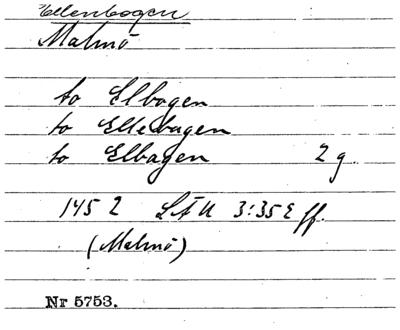 Ellenbogen
Malmö
to Elbogen
to Ellebagen
to Elbagen 2 g
1452 LFU 3:352 ff.
(Malmö)
Nr 5753.